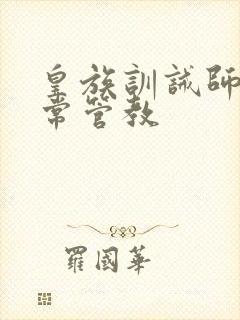 皇族訓誡師
常管教
羅國華